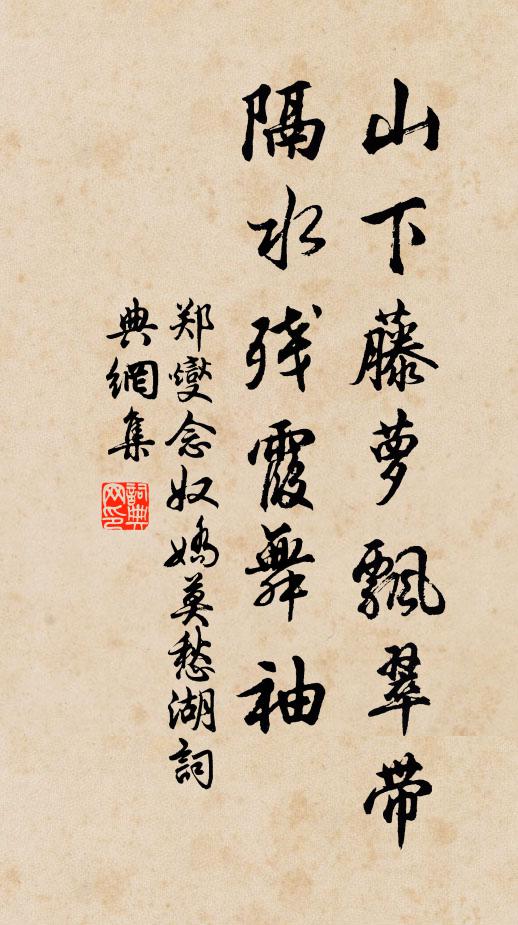 山下藤萝飘翠带
隔水残霞舞袖
郑燮念奴娇莫愁湖詞
典網集
詞典網印